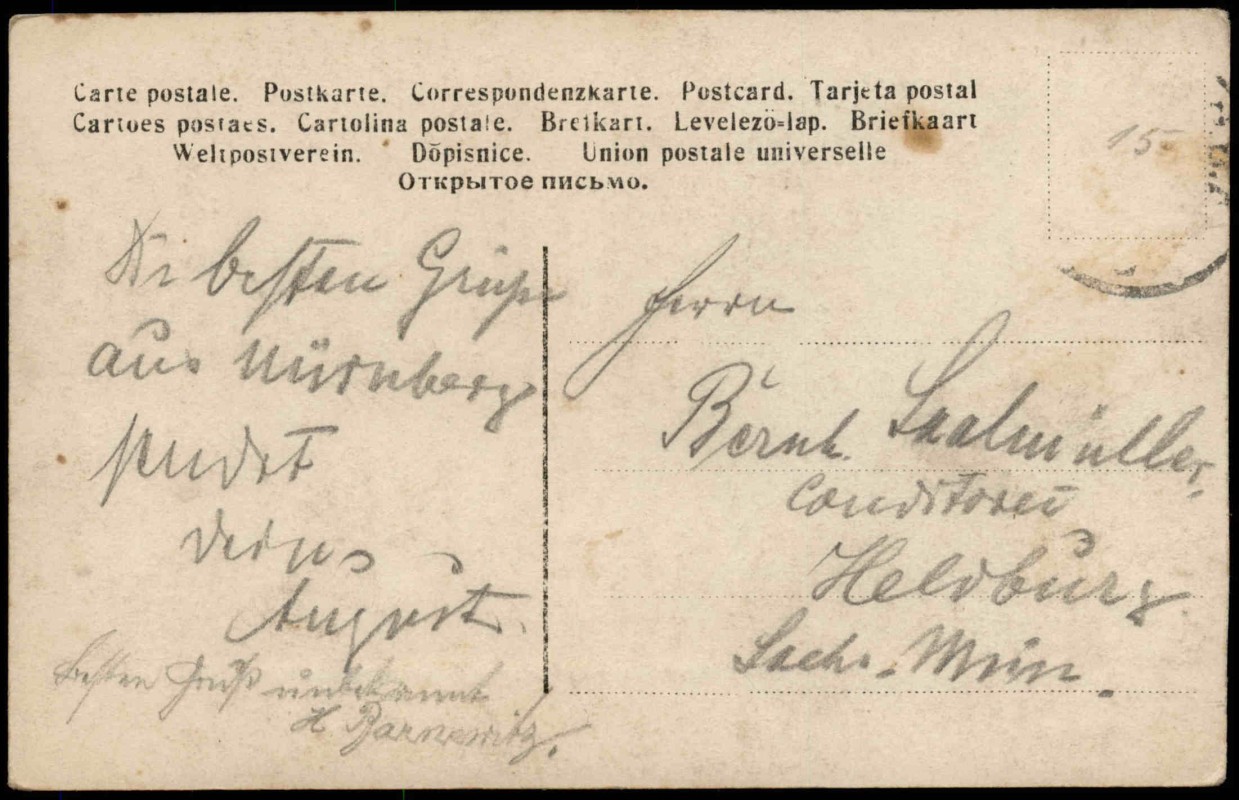 Carte postale. Postkarte. Correspondenzkarte. Postcard. Tarjeta postal
Cartoes postaes. Cartolina postale. Brefkart. Levelezö-lap. Briefkaart
Weltpostverein. Dopisnice. Union postale universelle
Открытое письмо.
15
Die besten Grüße
aus Nürnberg
sendet
Deins
August.
Besten Gruß unbekannt
H Barnewitz.
Herrn
Bernh. Saalmüller,
Conditorei
Heldburg
Sachs. Mein.